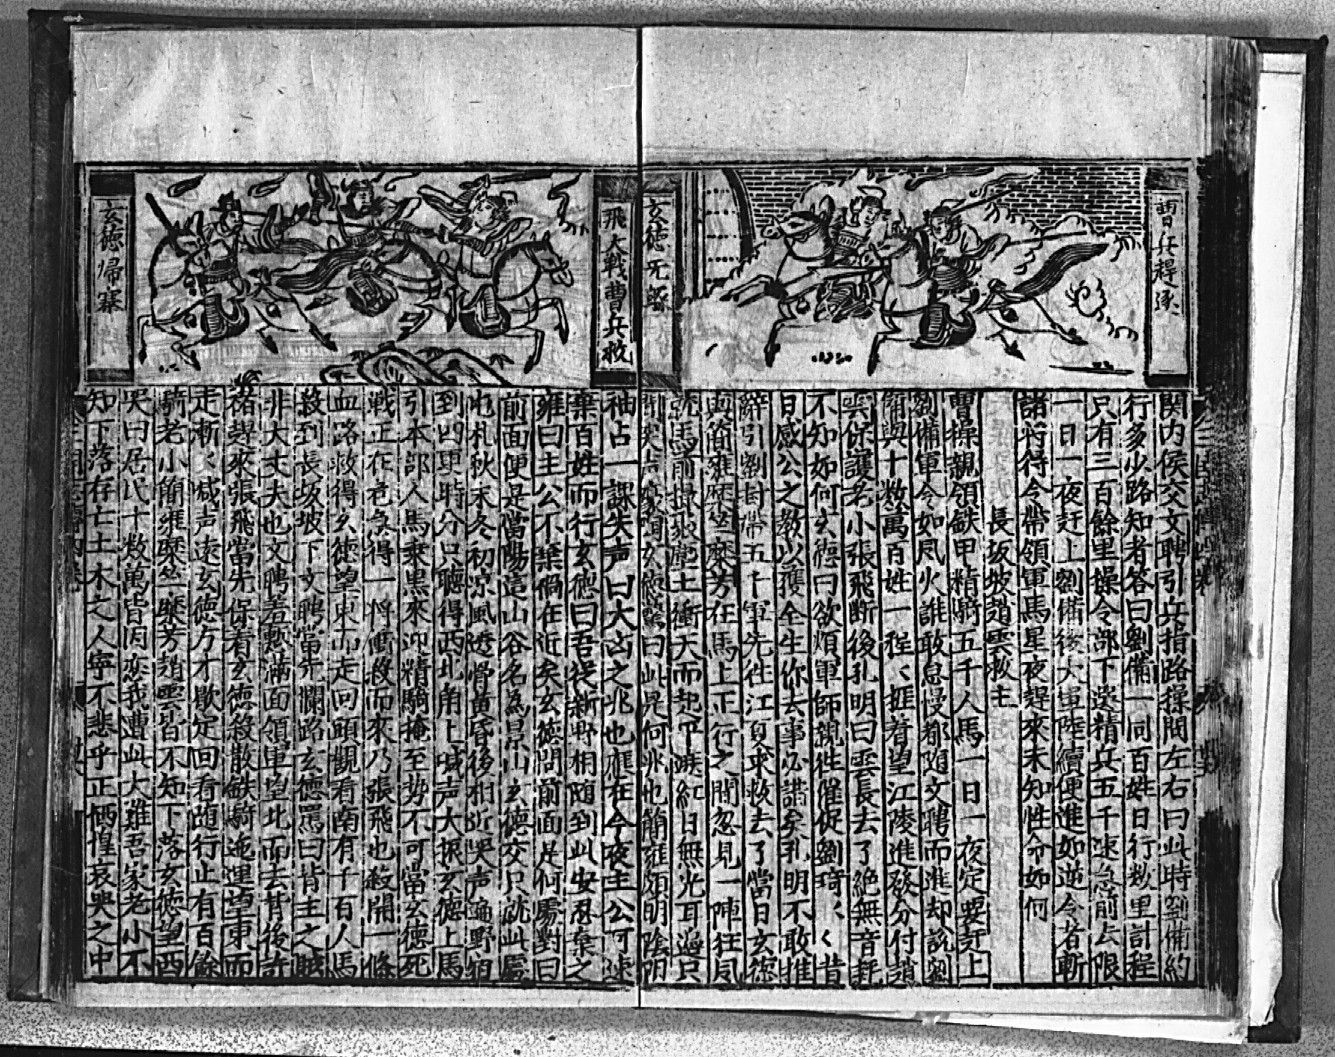 曹兵趕逐
玄德
関内侯交文聘引兵指路操問左右曰此時劉備約
行多少路知者答曰劉備一同百姓日行数里計程
只有三百餘里操令部下選精兵五千速急前去限
一日一夜赶上劉備後大軍陸續便進如逆令者斬
諸将得令帶領軍馬星夜趕來未知性命如何
長坂坡趙雲救主
曹操親領鉄甲精騎五千人馬一日一夜定要赶上
劉備軍令如風火誰敢怠慢都随文聘而進却説劉
備與十数萬百姓一程〻捱着望江陵進發分付趙
雲保護老小張飛断後孔明曰雲長去了絶無音耗
不知如何玄德曰欲煩軍師親往催促劉琦〻昔
日感公之教以獲全生你去事必諧矣孔明不敢推
辞引劉封帶五百軍先往江夏求救去了當日玄德
與簡雍糜竺糜芳在馬上正行之間忽見一陣狂風
就馬前塵土衝天而起平遮紅日無光耳邊只
玄德驚曰此是何兆也簡雍頗明陰陽
飛大戰曹兵救
玄德歸寨
袖占一課失声曰大凶之兆也應在今夜主公可速
棄百姓而行玄德曰吾從新野相随到此安忍棄之
雍曰主公不棄禍在近矣玄德問前面是何處對曰
前面便是當陽這山谷名為景山玄德交只就此處
屯札秋末冬初凉風透骨黄昏後相近哭声遍野
到四更時分只聽得西北角上喊声大振玄德上馬
引本部人馬乘黒來迎精騎掩至势不可當玄德死
戰正在危急得一将衝殺而來乃張飛也殺開一條
血路救得玄德望東而走回頭觀看南有千百人馬
殺到長坂坡下文聘當先攔路玄德罵曰背主之賊
非大丈夫也文聘羞慙滿面領軍望北而去背後許
褚趕來張飛當先保着玄德殺散鉄騎迤逦望東而
走漸〻喊声遠玄德方才歇定回看随行止有百餘
騎老小簡雍糜竺糜芳趙雲皆不知下落玄德望西
哭曰居民十数萬皆因恋我遭此大難吾家老小不
知下落存亡土木之人寧不悲乎正恓惶哀哭之中